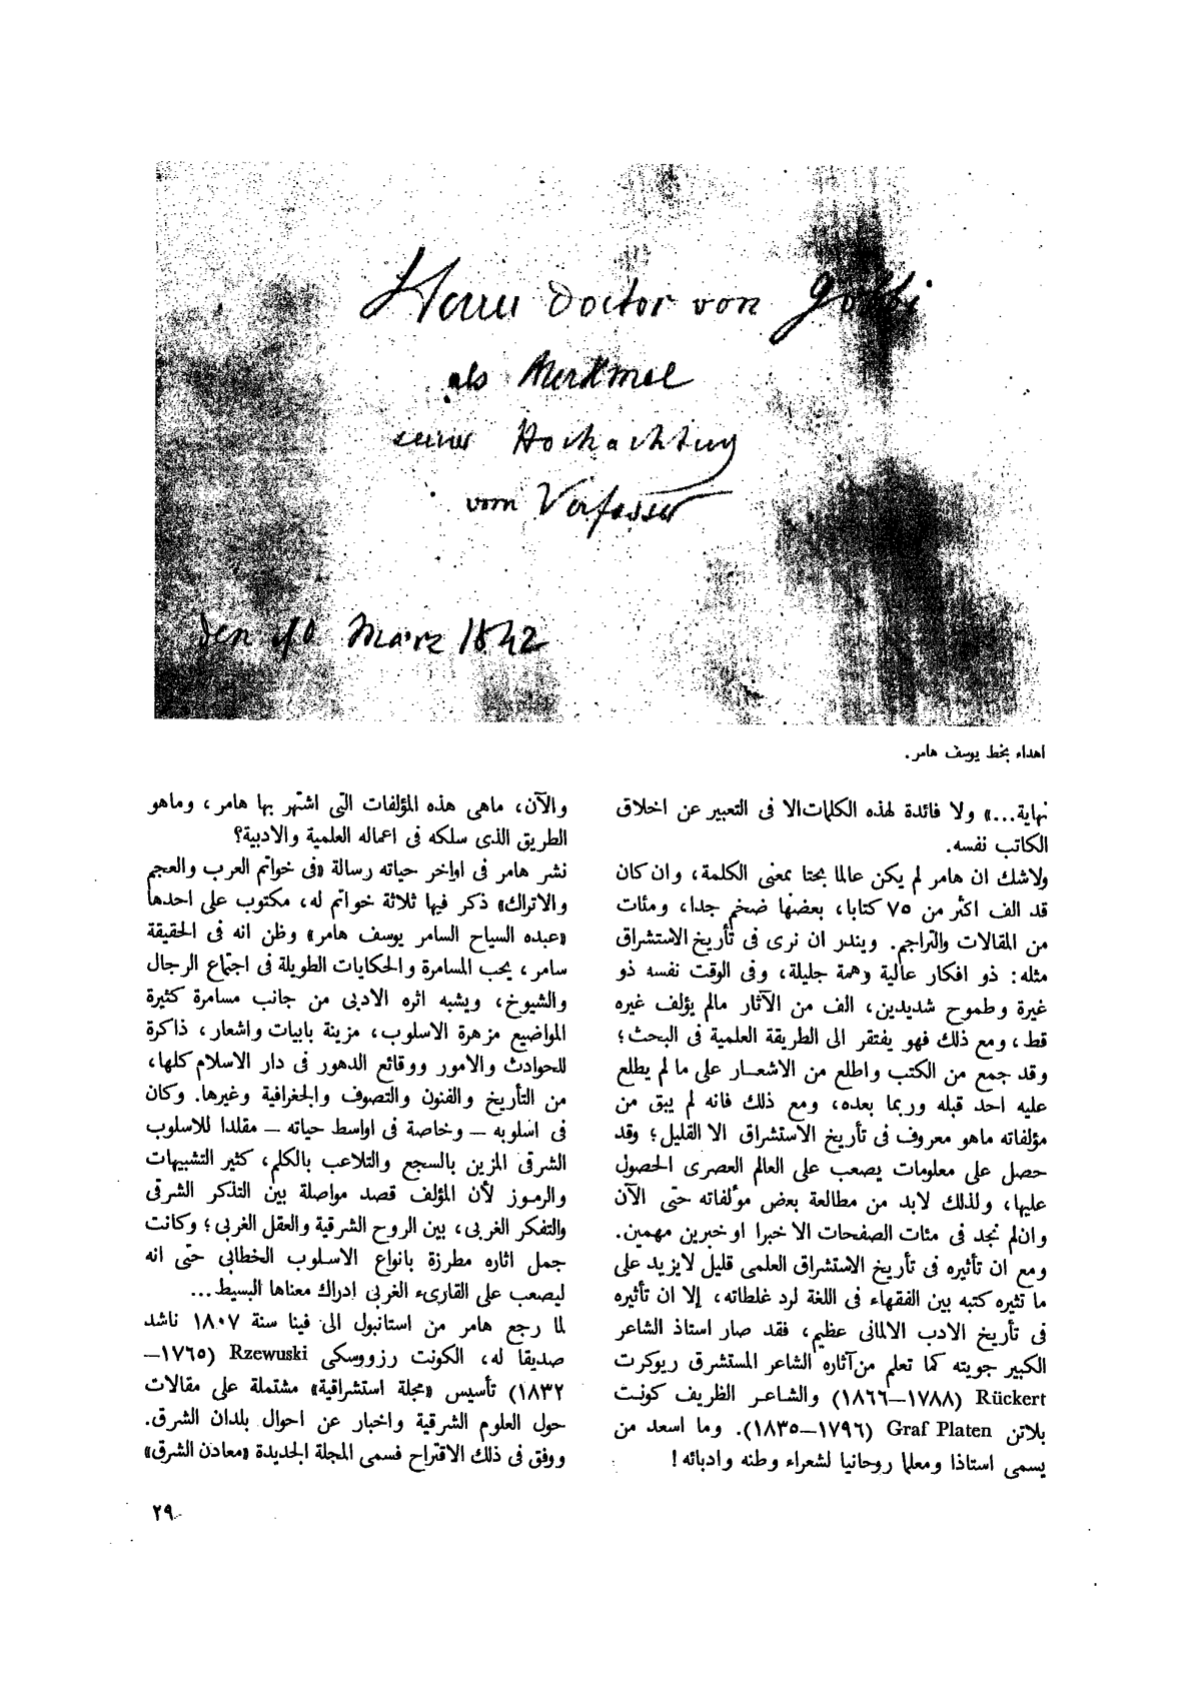 Herrn Doctor von
als Merkmal
seiner Hochachtung
vom Verfasser
den 10 März 1842
اهداء بخط يوسف هامر.
نهاية...» ولا فائدة لهذه الكلمات الا فى التعبير عن اخلاق
الكاتب نفسه.
ولاشك ان هامر لم يكن عالما بحتا بمعنى الكلمة، وان كان
قد الف اكثر من ٧٥ كتابا، بعضها ضخم جدا، ومئات
من المقالات والتراجم. ويندر ان نرى فى تأريخ الاستشراق
مثله: ذو افكار عالية وهمة جليلة، وفى الوقت نفسه ذو
غيرة وطموح شديدين، الف من الآثار مالم يؤلف غيره
قط، ومع ذلك فهو يفتقر الى الطريقة العلمية فى البحث؛
وقد جمع من الكتب واطلع من الاشعار على ما لم يطلع
عليه احد قبله وربما بعده، ومع ذلك فانه لم يبق من
مؤلفاته ماهو معروف فى تأريخ الاستشراق الا القليل؛ وقد
حصل على معلومات يصعب على العالم العصرى الحصول
عليها، ولذلك لابد من مطالعة بعض مؤلفاته حتى الآن
وان لم نجد فى مئات الصفحات الا خبرا او خبرين مهمين.
ومع ان تأثيره فى تأريخ الاستشراق العلمى قليل لايزيد على
ما تثيره كتبه بين الفقهاء فى اللغة لرد غلطاته، إلا ان تأثيره
فى تأريخ الادب الالمانى عظيم، فقد صار استاذ الشاعر
الكبير جويته كما تعلم من آثاره الشاعر المستشرق ريوكرت
Rückert (١٧٨٨–١٨٦٦) والشاعر الظريف كونت
بلاتن Graf Platen (١٧٩٦–١٨٣٥). وما اسعد من
يسمى استاذا ومعلما روحانيا لشعراء وطنه وادبائه!
والآن، ماهى هذه المؤلفات التى اشتهر بها هامر، وماهو
الطريق الذى سلكه فى اعماله العلمية والادبية؟
نشر هامر فى اواخر حياته رسالة «فى خواتم العرب والعجم
والاتراك» ذكر فيها ثلاثة خواتم له، مكتوب على احدها
«عبده السياح السامر يوسف هامر» وظن انه فى الحقيقة
سامر، يحب المسامرة والحكايات الطويلة فى اجتماع الرجال
والشيوخ، ويشبه اثره الادبى من جانب مسامرة كثيرة
المواضيع مزهرة الاسلوب، مزينة بابيات واشعار، ذاكرة
للحوادث والامور ووقائع الدهور فى دار الاسلام كلها،
من التأريخ والفنون والتصوف والجغرافية وغيرها. وكان
فى اسلوبه – وخاصة فى اواسط حياته – مقلدا للاسلوب
الشرقى المزين بالسجع والتلاعب بالكلم، كثير التشبيهات
والرموز لأن المؤلف قصد مواصلة بين التذكر الشرقى
والتفكر الغربى، بين الروح الشرقية والعقل الغربى؛ وكانت
جمل اثاره مطرزة بانواع الاسلوب الخطابى حتى انه
ليصعب على القارىء الغربى إدراك معناها البسيط...
لما رجع هامر من استانبول الى فينا سنة ١٨٠٧ ناشد
صديقا له، الكونت رزووسكى Rzewuski (١٧٦٥–
١٨٣٢) تأسيس «مجلة استشراقية» مشتملة على مقالات
حول العلوم الشرقية واخبار عن احوال بلدان الشرق.
ووفق فى ذلك الاقتراح فسمى المجلة الجديدة «معادن الشرق»
٢٩